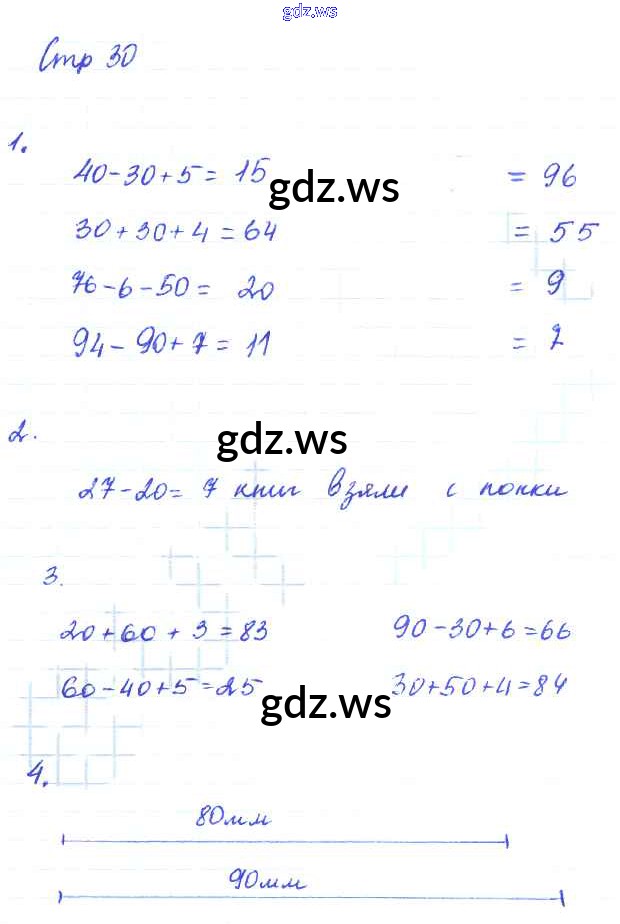 gdz.ws
Стр 30
1.
40-30+5= 15 = 96
gdz.ws
30+30+4=64 = 55
76-6-50= 20 = 9
94-90+7=11 = 7
2.
gdz.ws
27-20= 7 книг взяли с полки
3.
20+60+3=83 90-30+6=66
60-40+5=25 30+50+4=84
gdz.ws
4.
80мм
90мм